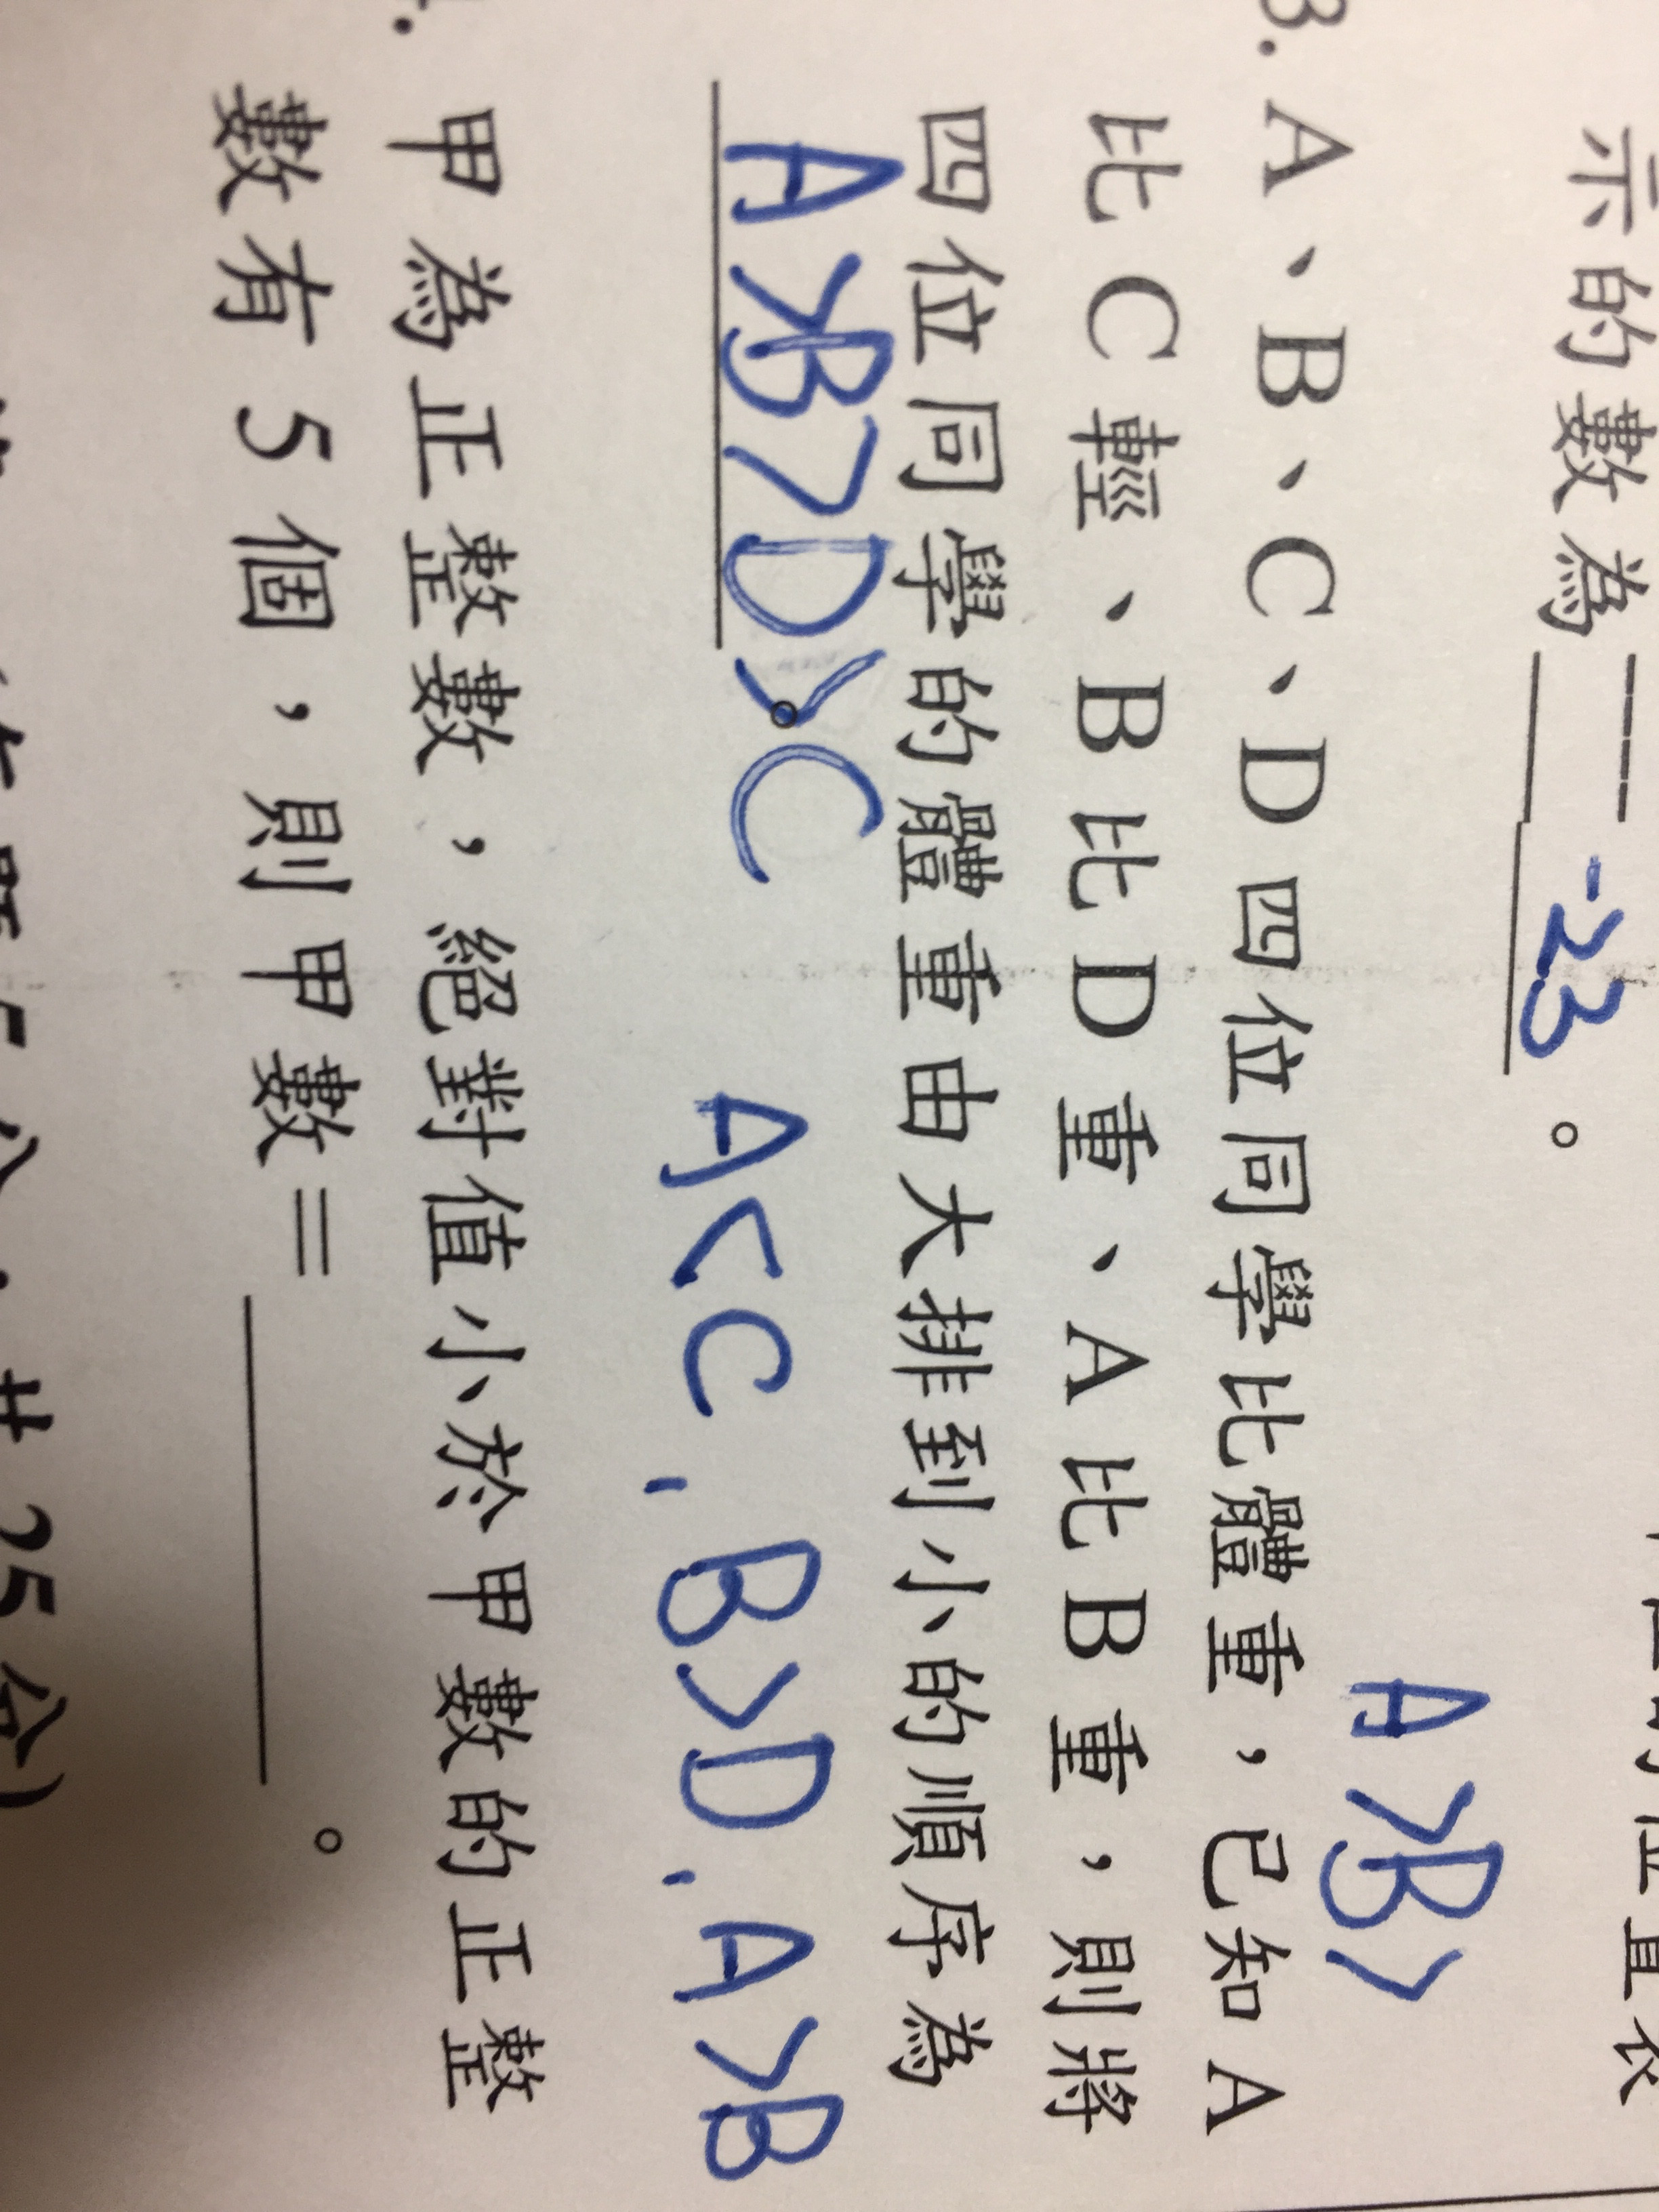 示的數為 -23 。
A>B>
3. A、B、C、D四位同學比體重，已知A
比C輕、B比D重、A比B重，則將
四位同學的體重由大排到小的順序為
A>B>D>C 。
A<C、B>D、A>B
甲為正整數，絕對值小於甲數的正整
數有5個，則甲數＝ 。
25分)